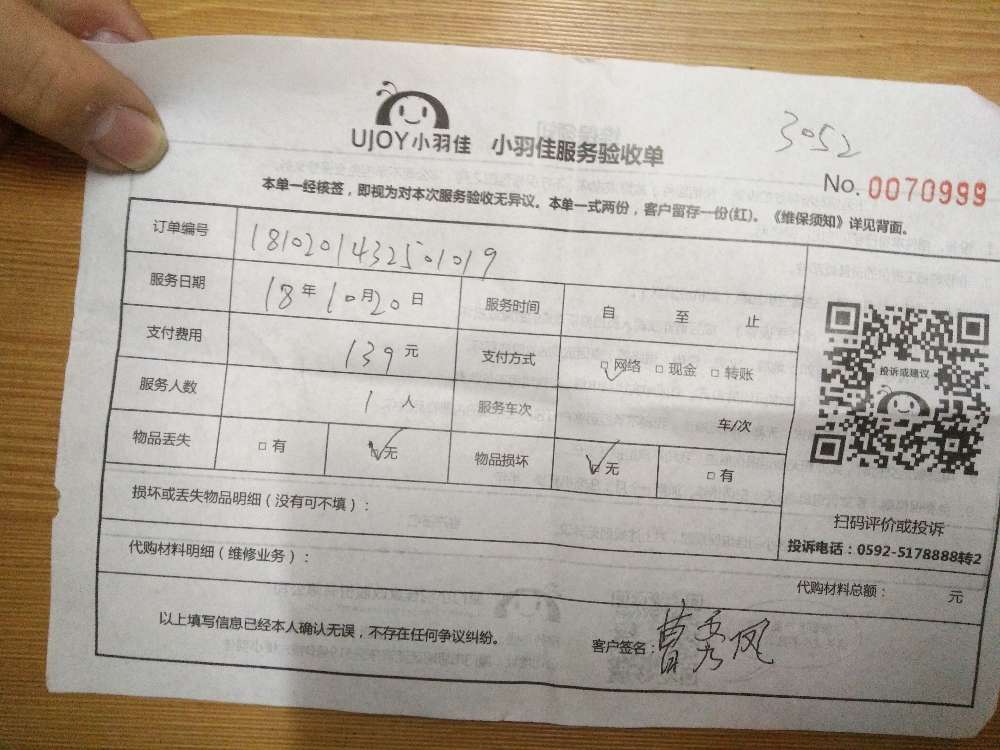 3052
UJOY小羽佳 小羽佳服务验收单
No. 0070999
本单一经核签，即视为对本次服务验收无异议。本单一式两份，客户留存一份(红)。《维保须知》详见背面。
订单编号 1810201432501019
服务日期 18年10月20日 服务时间 自 至 止
支付费用 139元 支付方式 □网络 □现金 □转账
服务人数 1人 服务车次 车/次
物品丢失 □有 □无 物品损坏 □无 □有
投诉或建议
损坏或丢失物品明细（没有可不填）：
扫码评价或投诉
投诉电话：0592-5178888转2
代购材料明细（维修业务）：
代购材料总额： 元
以上填写信息已经本人确认无误，不存在任何争议纠纷。
客户签名：曹秀凤